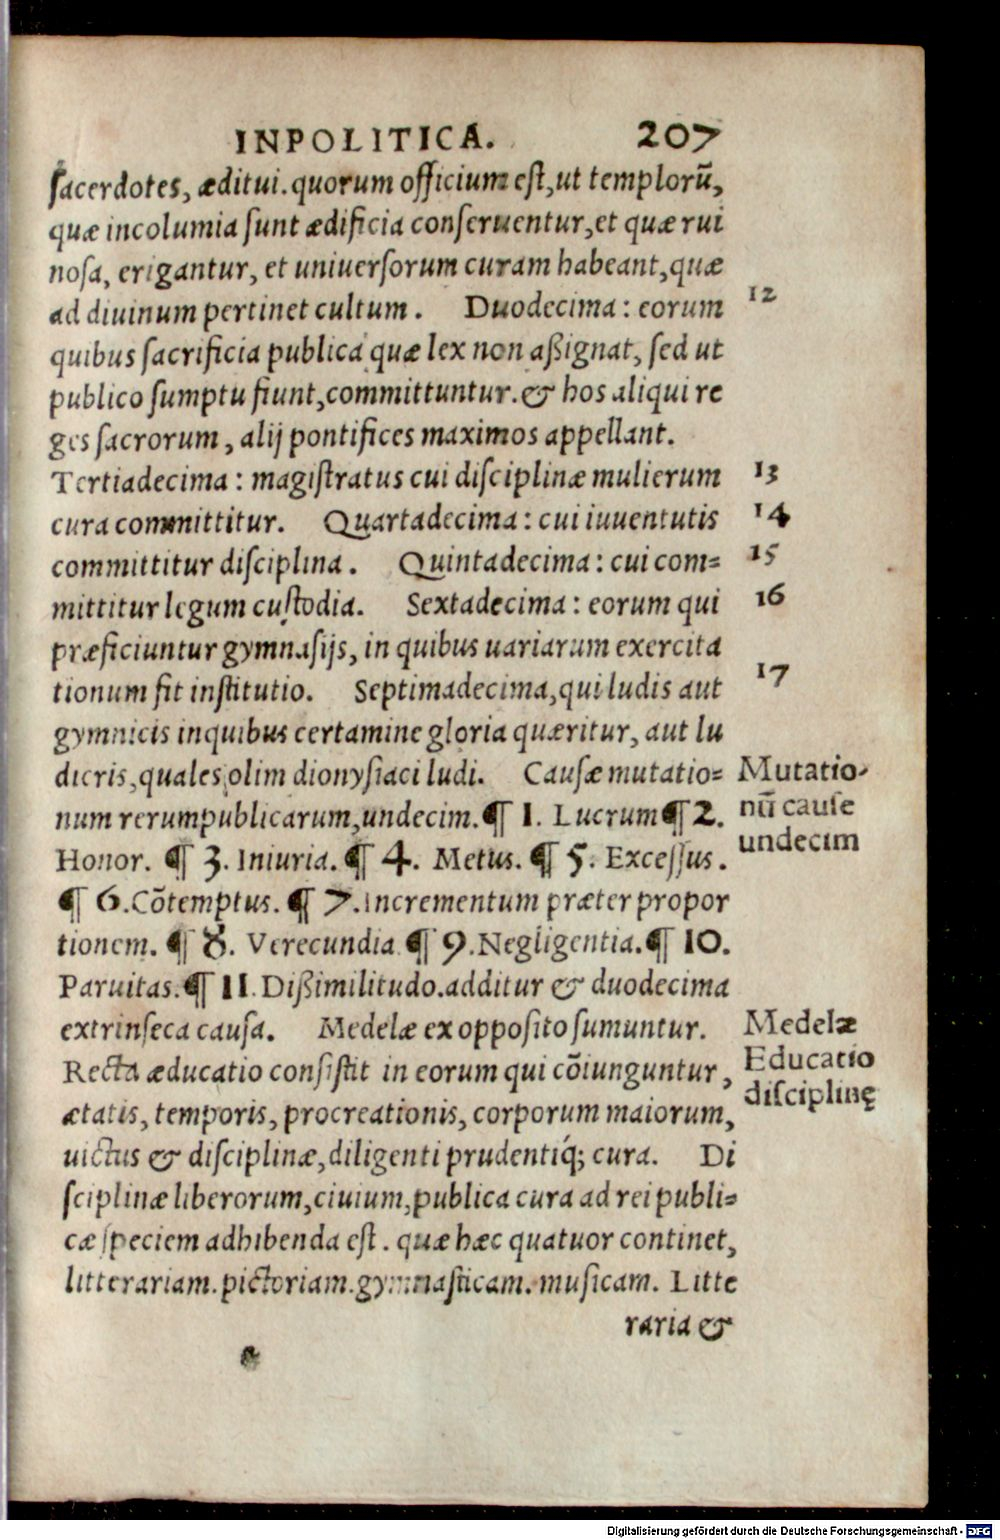 INPOLITICA. 207
sacerdotes, æditui. quorum officium est, ut templorũ,
quæ incolumia sunt ædificia conseruentur, et quæ rui
nosa, erigantur, et uniuersorum curam habeant, quæ
ad diuinum pertinet cultum. Duodecima: eorum 12
quibus sacrificia publica quæ lex non aßignat, sed ut
publico sumptu fiunt, committuntur. & hos aliqui re
ges sacrorum, alij pontifices maximos appellant.
Tertiadecima: magistratus cui disciplinæ mulierum 13
cura committitur. Quartadecima: cui iuuentutis 14
committitur disciplina. Quintadecima: cui com= 15
mittitur legum custodia. Sextadecima: eorum qui 16
præficiuntur gymnasijs, in quibus uariarum exercita
tionum fit institutio. Septimadecima, qui ludis aut 17
gymnicis in quibus certamine gloria quæritur, aut lu
dicris, quales olim dionysiaci ludi. Causæ mutatio= Mutatio-
num rerumpublicarum, undecim. ¶ 1. Lucrum ¶ 2. nũ cause
Honor. ¶ 3. Iniuria. ¶ 4. Metus. ¶ 5. Excessus. undecim
¶ 6. Cõtemptus. ¶ 7. Incrementum præter propor
tionem. ¶ 8. Verecundia ¶ 9. Negligentia. ¶ 10.
Paruitas. ¶ 11. Dißimilitudo. additur & duodecima
extrinseca causa. Medelæ ex opposito sumuntur. Medelæ
Recta æducatio consistit in eorum qui cõiunguntur, Educatio
ætatis, temporis, procreationis, corporum maiorum, disciplinę
uictus & disciplinæ, diligenti prudentiq́; cura. Di
sciplinæ liberorum, ciuium, publica cura ad rei publi=
cæ speciem adhibenda est. quæ hæc quatuor continet,
litterariam. pictoriam. gymnasticam. musicam. Litte
raria &
Digitalisierung gefördert durch die Deutsche Forschungsgemeinschaft - DFG